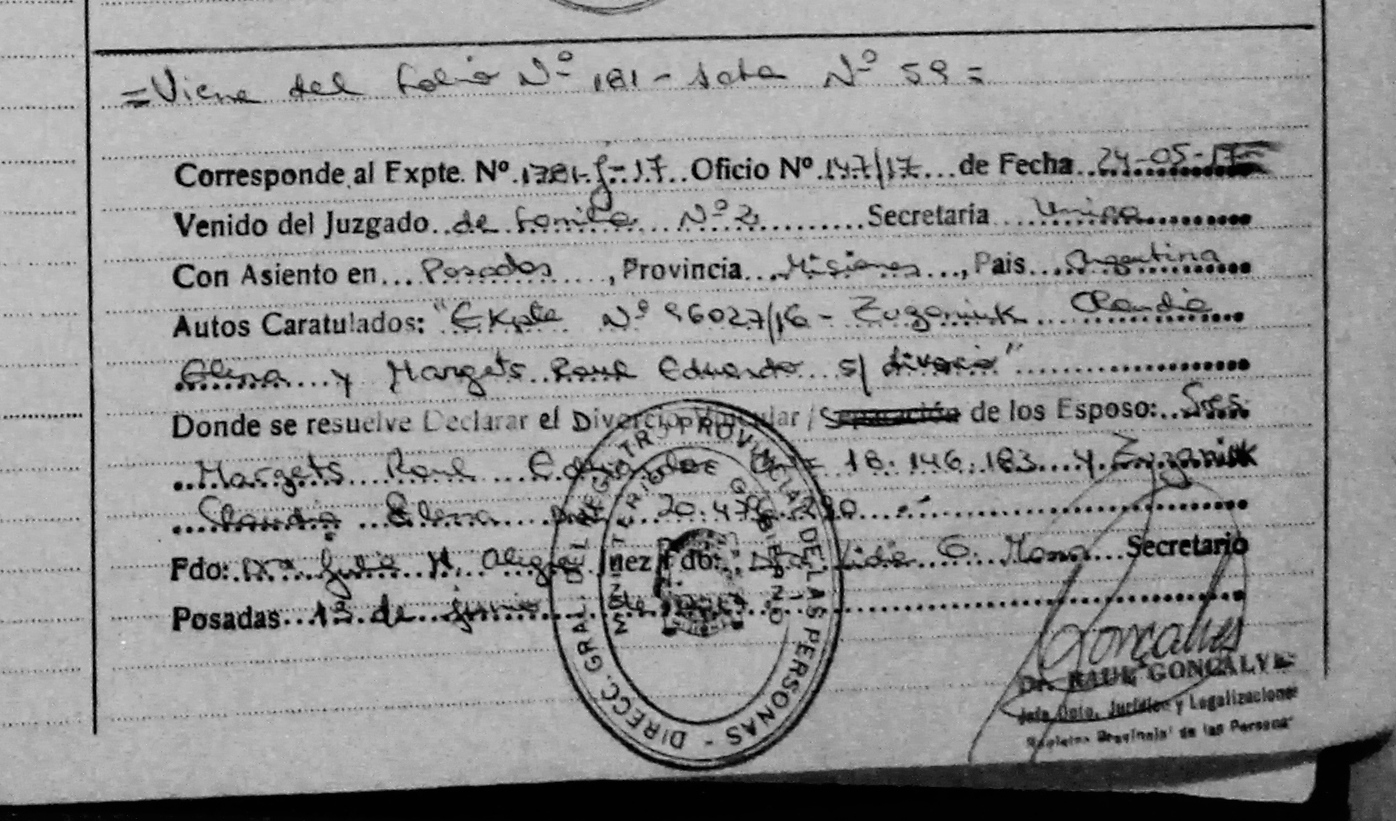 =Viene del folio Nº 181 - Acta Nº 59=
Corresponde al Expte. Nº 1781-J-17 Oficio Nº 147/17 de Fecha 24-05-17
Venido del Juzgado de Familia Nº 2 Secretaria Unica
Con Asiento en Posadas, Provincia Misiones, Pais Argentina
Autos Caratulados: "Expte Nº 96027/16 - Zuganiuk Claudia
Elena y Margets Raul Eduardo s/ divorcio"
Donde se resuelve Declarar el Divorcio Vincular / Separación de los Esposo: Sres.
Margets Raul Eduardo 18.146.183 y Zuganiuk
Claudia Elena 20.476.
Fdo: Dra Julia M. Juez Fdo: Dra Lidia Secretario
Posadas 13 de junio de
DIRECC. GRAL. DEL REGISTRO PROVINCIAL DE LAS PERSONAS -
MINISTERIO DE GOBIERNO
Gonçalves
Dr. RAUL GONÇALVES
Jefe Dpto. Jurídico y Legalizaciones
Registro Provincial de las Personas